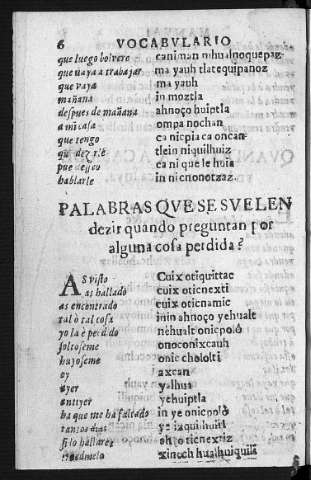 6 VOCABVLARIO
que luego bolvere can i man nihualnoquepaz
que vaya a trabajar ma yauh tlatequipanoz
que vaya ma yauh
mañana in moztla
despues de mañana ahnoço huiptla
a mi casa ompa nochan
que tengo ca nicpia ca oncan
tlein niquilhuiz
ca ni que le huia
hablarle in nicnonotzaz.
PALABRAS QVE SE SVELEN
dezir quando preguntan por
alguna cosa perdida?
AS visto Cuix otiquittac
as hallado cuix oticnexti
as encontrado cuix oticnamic
tal ò tal cosa inin ahnoço yehualt
yo la è perdido nehualt onicpolò
soltoseme onoconixcauh
huyoseme onic chololti
oy axcan
ayer yalhua
antiyer yehuiptla
ha que me ha faltado in ye onicpolo
tantos dias ye izqui ilhuitl
si lo hallares ohto ticnextiz
xinech hualhuiquilis